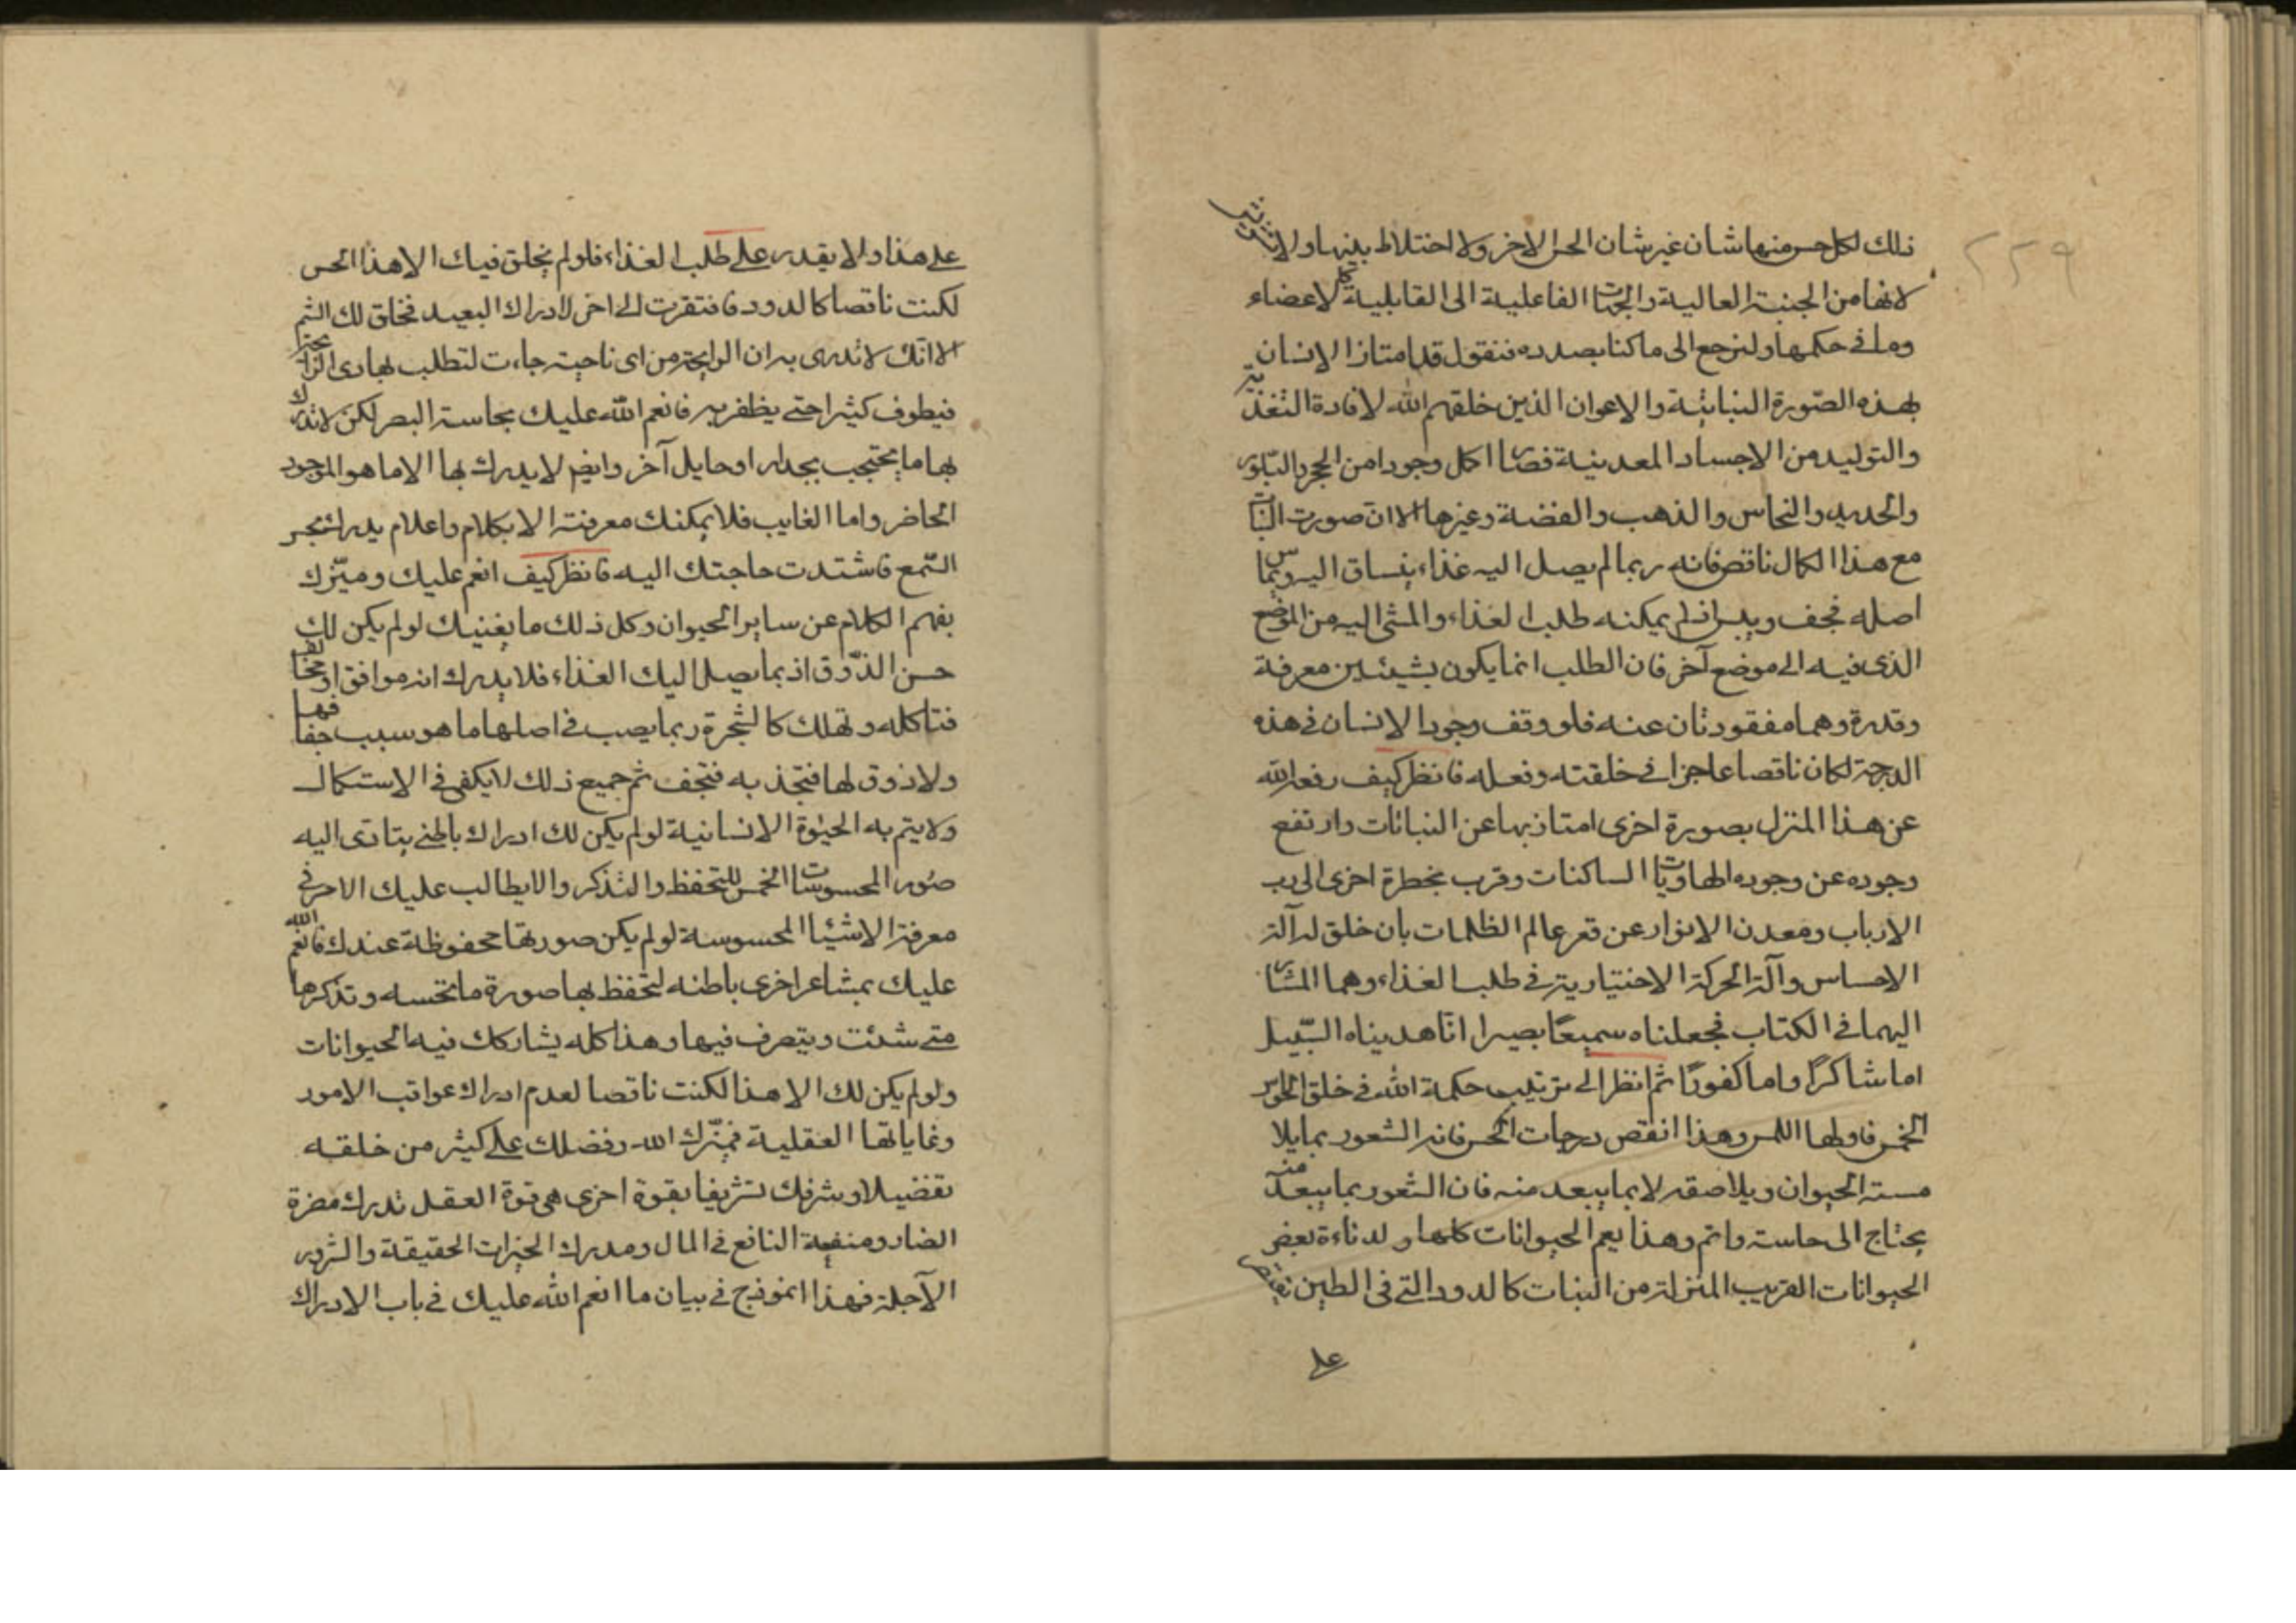 ٢٢٩
ذلك لكل حس منها شان غير شان الحس الاخر ولا اختلاط بينها ولا
لانها من الجنبة العالية والجهات الفاعلية الى القابلية كالاعضاء
وما في حكمها ولنرجع الى ما كنا بصدده فنقول قد امتاز الانسان
بهذه الصّورة النباتية والاعوان الذين خلقهم الله لافادة التغذية
والتوليد من الاجساد المعدنية فصار اكمل وجودا من الحجر والبلّور
والحديد والنحاس والذهب والفضة وغيرها الا ان صورت النبات
مع هذا الكمال ناقص فانه ربما لم يصل اليه غذاء ينساق اليه ويماس
اصله فيجف وييبس اذ لم يمكنه طلب الغذاء والمشى اليه من الموضع
الذى فيه الى موضع آخر فان الطلب انما يكون بشيئين معرفة
وقدرة وهما مفقودتان عنه فلو وقف وجود الانسان فى هذه
الدرجة لكان ناقصا عاجزا فى خلقته وفعله فانظر كيف رفعه الله
عن هذا المنزل بصورة اخرى امتاز بها عن النباتات وارتفع
وجوده عن وجود الهاويات الساكنات وقرب بخطرة اخرى الى رب
الارباب ومعدن الانوار عن قعر عالم الظلمات بان خلق له آلة
الاحساس وآلة الحركة الاختيارية في طلب الغذاء وهما المشار
اليهما فى الكتاب فجعلناه سميعًا بصيرا انا هديناه السّبيل
اما شاكرًا واما كفورًا ثم انظر الى ترتيب حكمة الله فى خلق الحواس
الخمس فاولها اللمس وهذا انقص درجات الحس فانه الشعور بما يلا
مسته الحيوان ويلاصقه لا بما يبعد منه فان الشعور بما يبعد منه
يحتاج الى حاسة واتم وهذا يعم الحيوانات كلها ولدناءة بعض
الحيوانات القريب المنزلة من النبات كالدود التى فى الطين تقتصر
على
على هذا ولا يقدر على طلب الغذاء فلو لم يخلق فيك الا هذا الحس
لكنت ناقصا كالدود فافتقرت الى اخر لادراك البعيد فخلق لك الشم
الا انك لا تدرى به ان الرايحة من اى ناحية جاءت لتطلب بها ذى الرائحة
فيطوف كثيرا حتى يظفر به فانعم الله عليك بحاسة البصر لكن لا تدرك
بها ما يحتجب بجدار او حايل آخر وايضا لا يدرك بها الا ما هو الموجود
الحاضر واما الغايب فلا يمكنك معرفته الا بكلام واعلام يدرك بحس
السّمع فاشتدت حاجتك اليه فانظر كيف انعم عليك وميّزك
بفهم الكلام عن ساير الحيوان وكل ذلك ما يغنيك لو لم يكن لك
حسن الذّوق اذ بما يصل اليك الغذاء فلا يدرك انه موافق او مخالف
فتاكله وتهلك كالشجرة ربما يصب فى اصلها ما هو سبب جفافها
ولا ذوق لها فتجذبه فتجف ثم جميع ذلك لا يكفى فى الاستكمال
ولا يتم به الحيوة الانسانية لو لم يكن لك ادراك باطنى يتادى اليه
صُور المحسوسات الخمس للتحفظ والتذكر والا يطالب عليك الامر فى
معرفة الاشياء المحسوسة لو لم يكن صورتها محفوظة عندك فانعم الله
عليك بمشاعر اخرى باطنه لتحفظ بها صورة ما تحسه وتذكرها
متى شئت ويتصرف فيها وهذا كله يشاركك فيه الحيوانات
ولو لم يكن لك الا هذا لكنت ناقصا لعدم ادراك عواقب الامور
وغاياتها العقلية فميّزك الله وفضلك على كثير من خلقه
تفضيلا وشرفك تشريفا بقوة اخرى هى قوة العقل تدرك مضرة
الضار ومنفعة النافع فى المال ومدرك الخيرات الحقيقة والشرور
الآجلة فهذا انموذج فى بيان ما انعم الله عليك فى باب الادراك